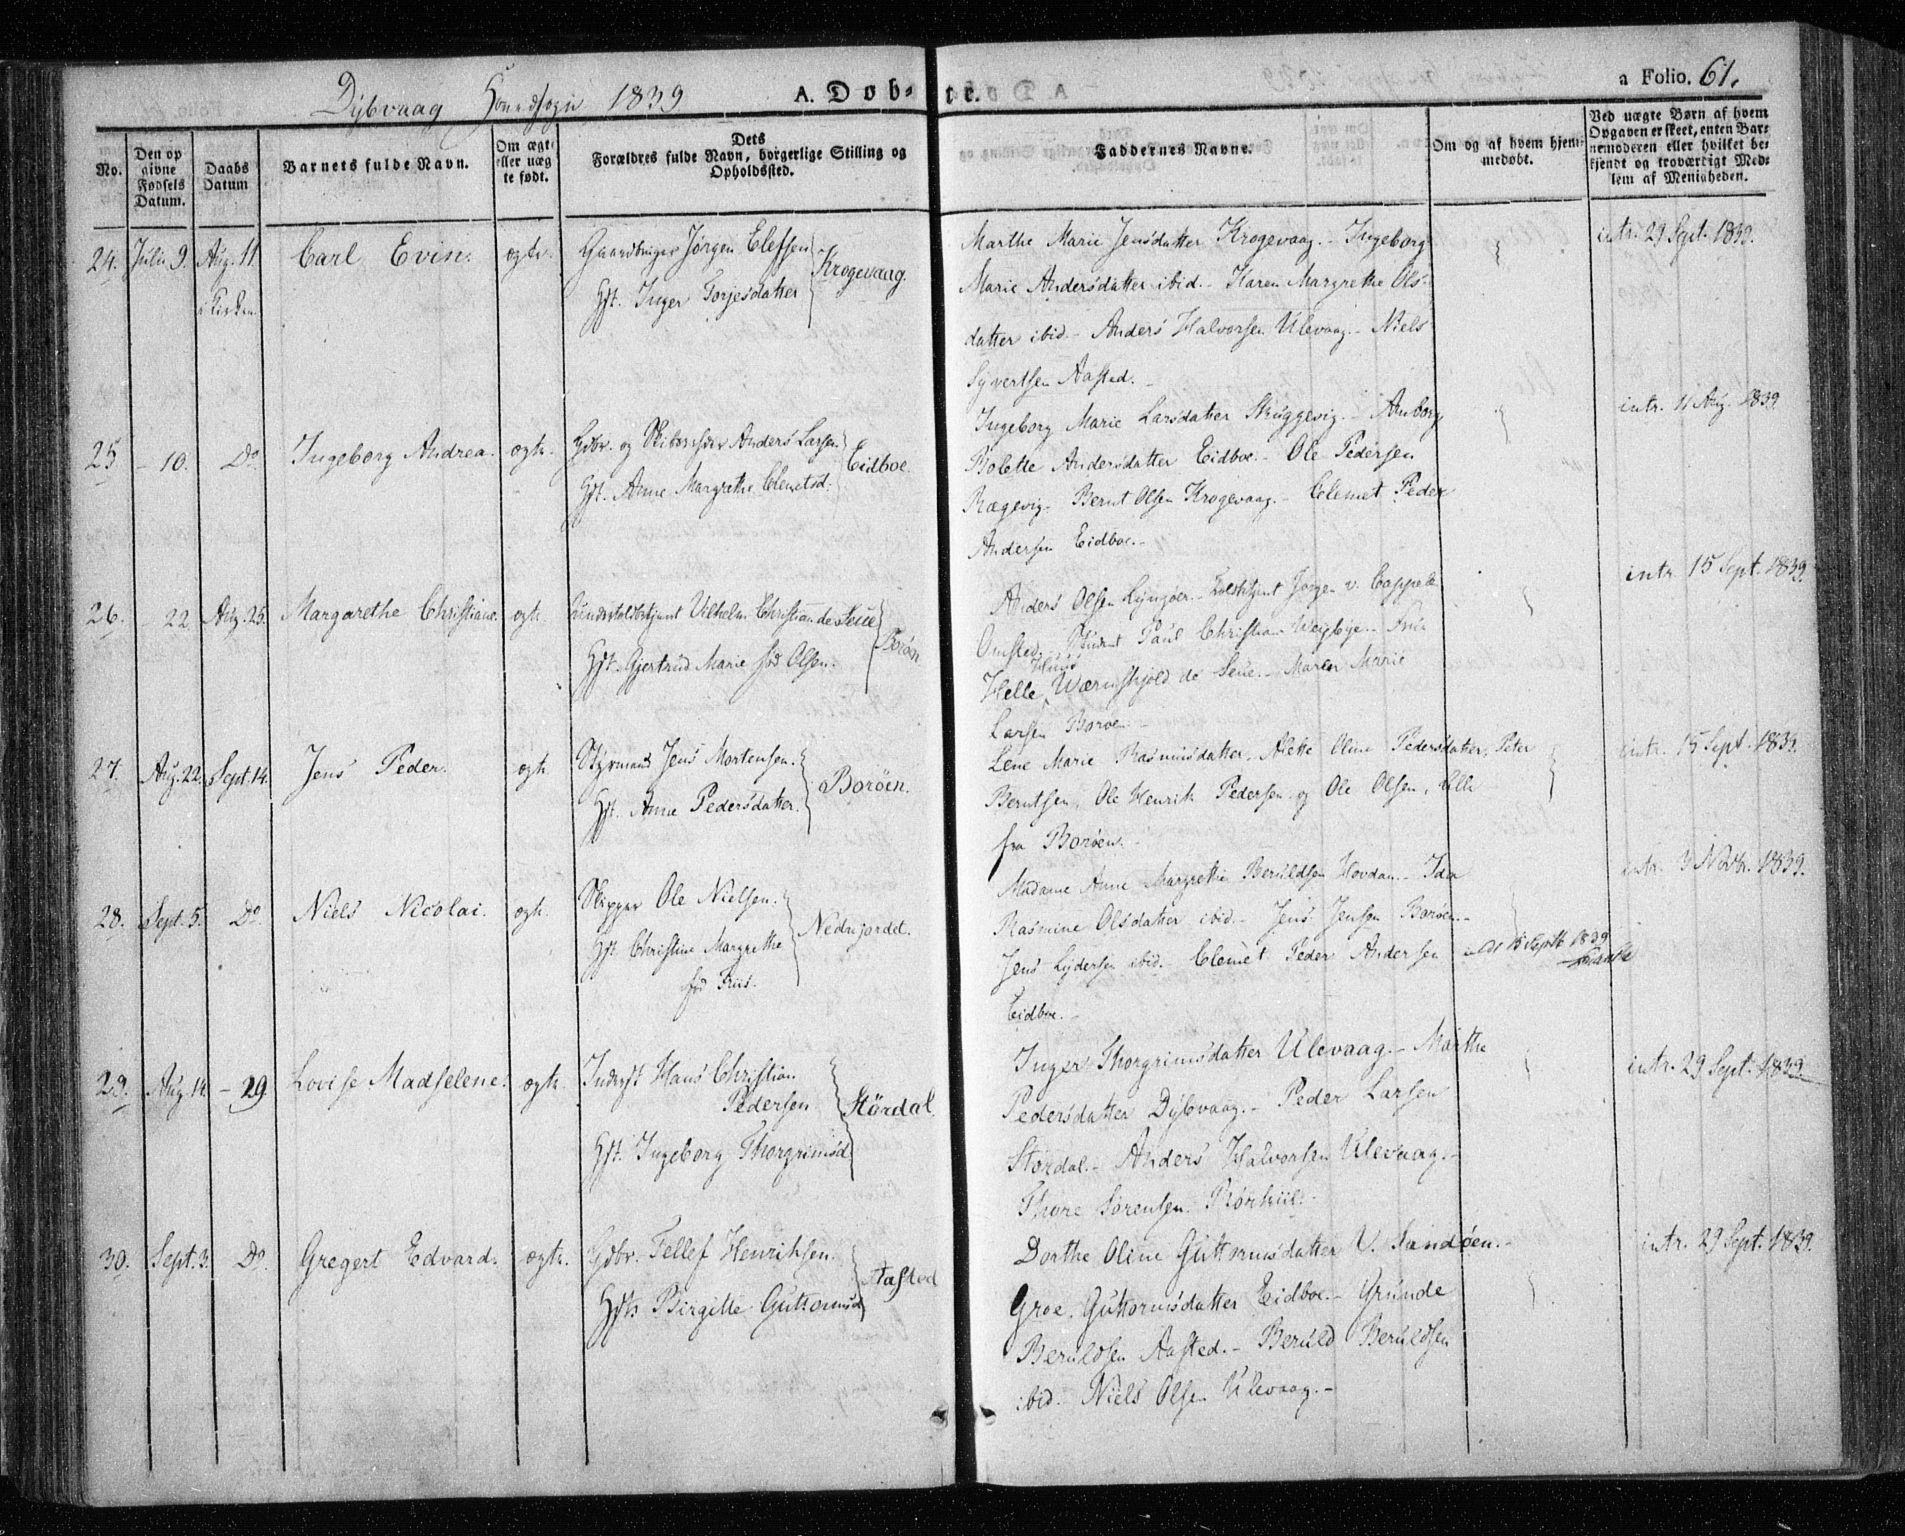 Dybvaag Hovedsogn 1839 A. Døbte. a Folio. 61.
No.
Den opgivne Fødsels Datum.
Daabs Datum
Barnets fulde Navn.
Om ægte eller uægte født.
Dets Forældres fulde Navn, borgerlige Stilling og Opholdssted.
Faddernes Navne.
Om og af hvem hjemmedøbt.
Ved uægte Børn af hvem Opgaven er skeet, enten Barnemoderen eller hvilket bekjendt og troværdigt Medlem af Menigheden.
24. Julii 9. Aug. 11 i Kirken Carl Evin. ægte.
Gaardbruger Jørgen Elefsen
Hst. Inger Torjesdatter
Krogevaag.
Marthe Marie Jensdatter Krogevaag. - Ingeborg
Marie Andersdatter ibid. - Karen Margrethe Ols-
datter ibid. - Anders Halvorsen Ulevaag. - Niels
Syvertsen Aasted. -
intr. 29 Sept. 1839.
25 - 10. Do Ingeborg Andrea. ægte.
Gdbr. og Anders Larsen
Hst. Anne Margrethe Clemetsd.
Eidboe.
Ingeborg Marie Larsdatter Skruggevig. - Anborg
Bolette Andersdatter Eidboe. - Ole Pedersen
Rægevig. - Bernt Olsen Krogevaag. - Clemet Peder
Andersen Eidboe. -
intr. 11 Aug. 1839
26. - 22 Aug. 25. Margarethe Christiane. ægte.
Vilhelm Christian de Seue
Hst. Gjertrud Marie fød Olsen.
Borøn
Anders Olsen Lyngøer. - Jørgen v. Cappelen
Omsted. Paul Christian Weigbye. - Frue
Helle Huus Wærnskjold de Seue. - Maren Marie
Larsen Borøe -
intr. 15 Sept. 1839.
27. Aug. 22. Sept. 14. Jens Peder. ægte.
Styrmand Jens Mortensen.
Hst. Anne Pedersdatter.
Borøen.
Lene Marie Rasmusdatter, Alette Oline Pedersdatter, Peter
Berntsen, Ole Henrik Pedersen og Ole Olsen, alle
fra Borøen. -
intr. 15 Sept. 1839.
28. Sept. 5. Do Niels Nicolai. ægte.
Skipper Ole Nielsen.
Hst Christine Margrethe
fød Friis.
Nedrejordet.
Madame Anne Margrethe Beruldsen Hovdan. - Ida
Rasmine Olsdatter ibid. - Jens Jensen Borøen. -
Jens Lydersen ibid. - Clemet Peder Andersen
Eidboe. -
15 Septb 1839
intr. 3 Novbr. 1839.
29. Aug. 14. - 29. Lovise Madselene. ægte.
Inderst Hans Christian
Pedersen
Hst. Ingeborg Thorgrimsd
Størdal.
Inger Thorgrimsdatter Ulevaag. - Marthe
Pedersdatter Dybvaag. - Peder Larsen
Størdal. - Anders Halvorsen Ulevaag. -
Thore Sørensen Rørkiil. -
intr. 29 Sept. 1839
30. Sept. 3. Do. Gregert Edvard. ægte.
Gdbr. Tellef Henriksen.
Hst. Birgitte Guttormsd
Aasted
Dorthe Oline Guttormsdatter V. Sandøen. -
Groe Guttormsdatter Eidboe. - Grunde
Beruldsen Aasted. - Beruld Beruldsen
ibid. Niels Olsen Ulevaag. -
intr. 29 Sept. 1839.